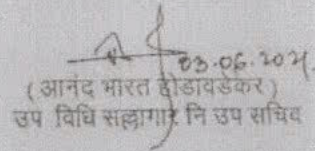 03.06.2021.
(आनंद भारत होडावडेकर)
उप विधि सल्लागार नि उप सचिव